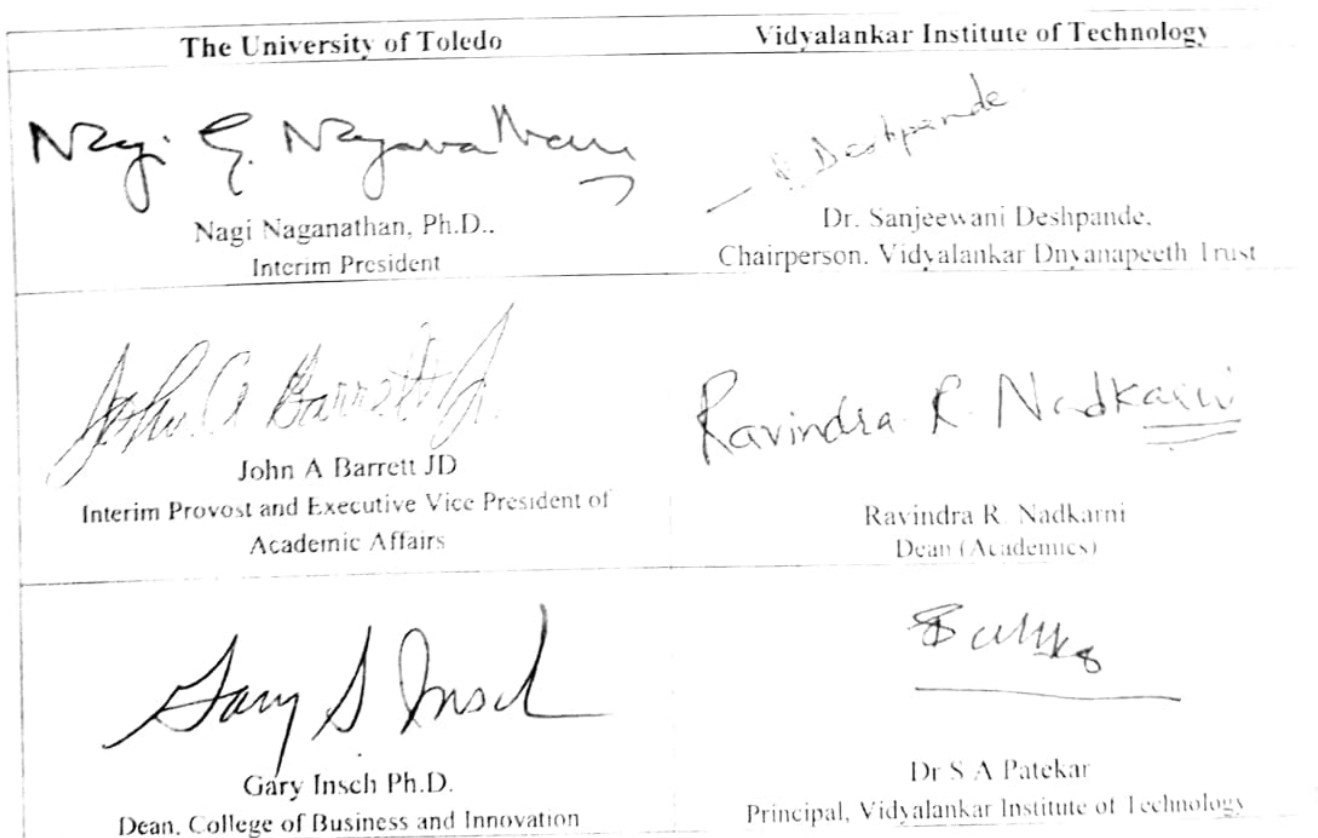 The University of Toledo
Vidyalankar Institute of Technology
Nagi G. Naganathan
Deshpande
Nagi Naganathan, Ph.D..
Interim President
Dr. Sanjeewani Deshpande,
Chairperson, Vidyalankar Dnyanapeeth Trust
John A Barrett Jr.
Ravindra R Nadkarni
John A Barrett JD
Interim Provost and Executive Vice President of
Academic Affairs
Ravindra R. Nadkarni
Dean (Academics)
Gary S Insch
Gary Insch Ph.D.
Dean, College of Business and Innovation
Dr S A Patekar
Principal, Vidyalankar Institute of Technology